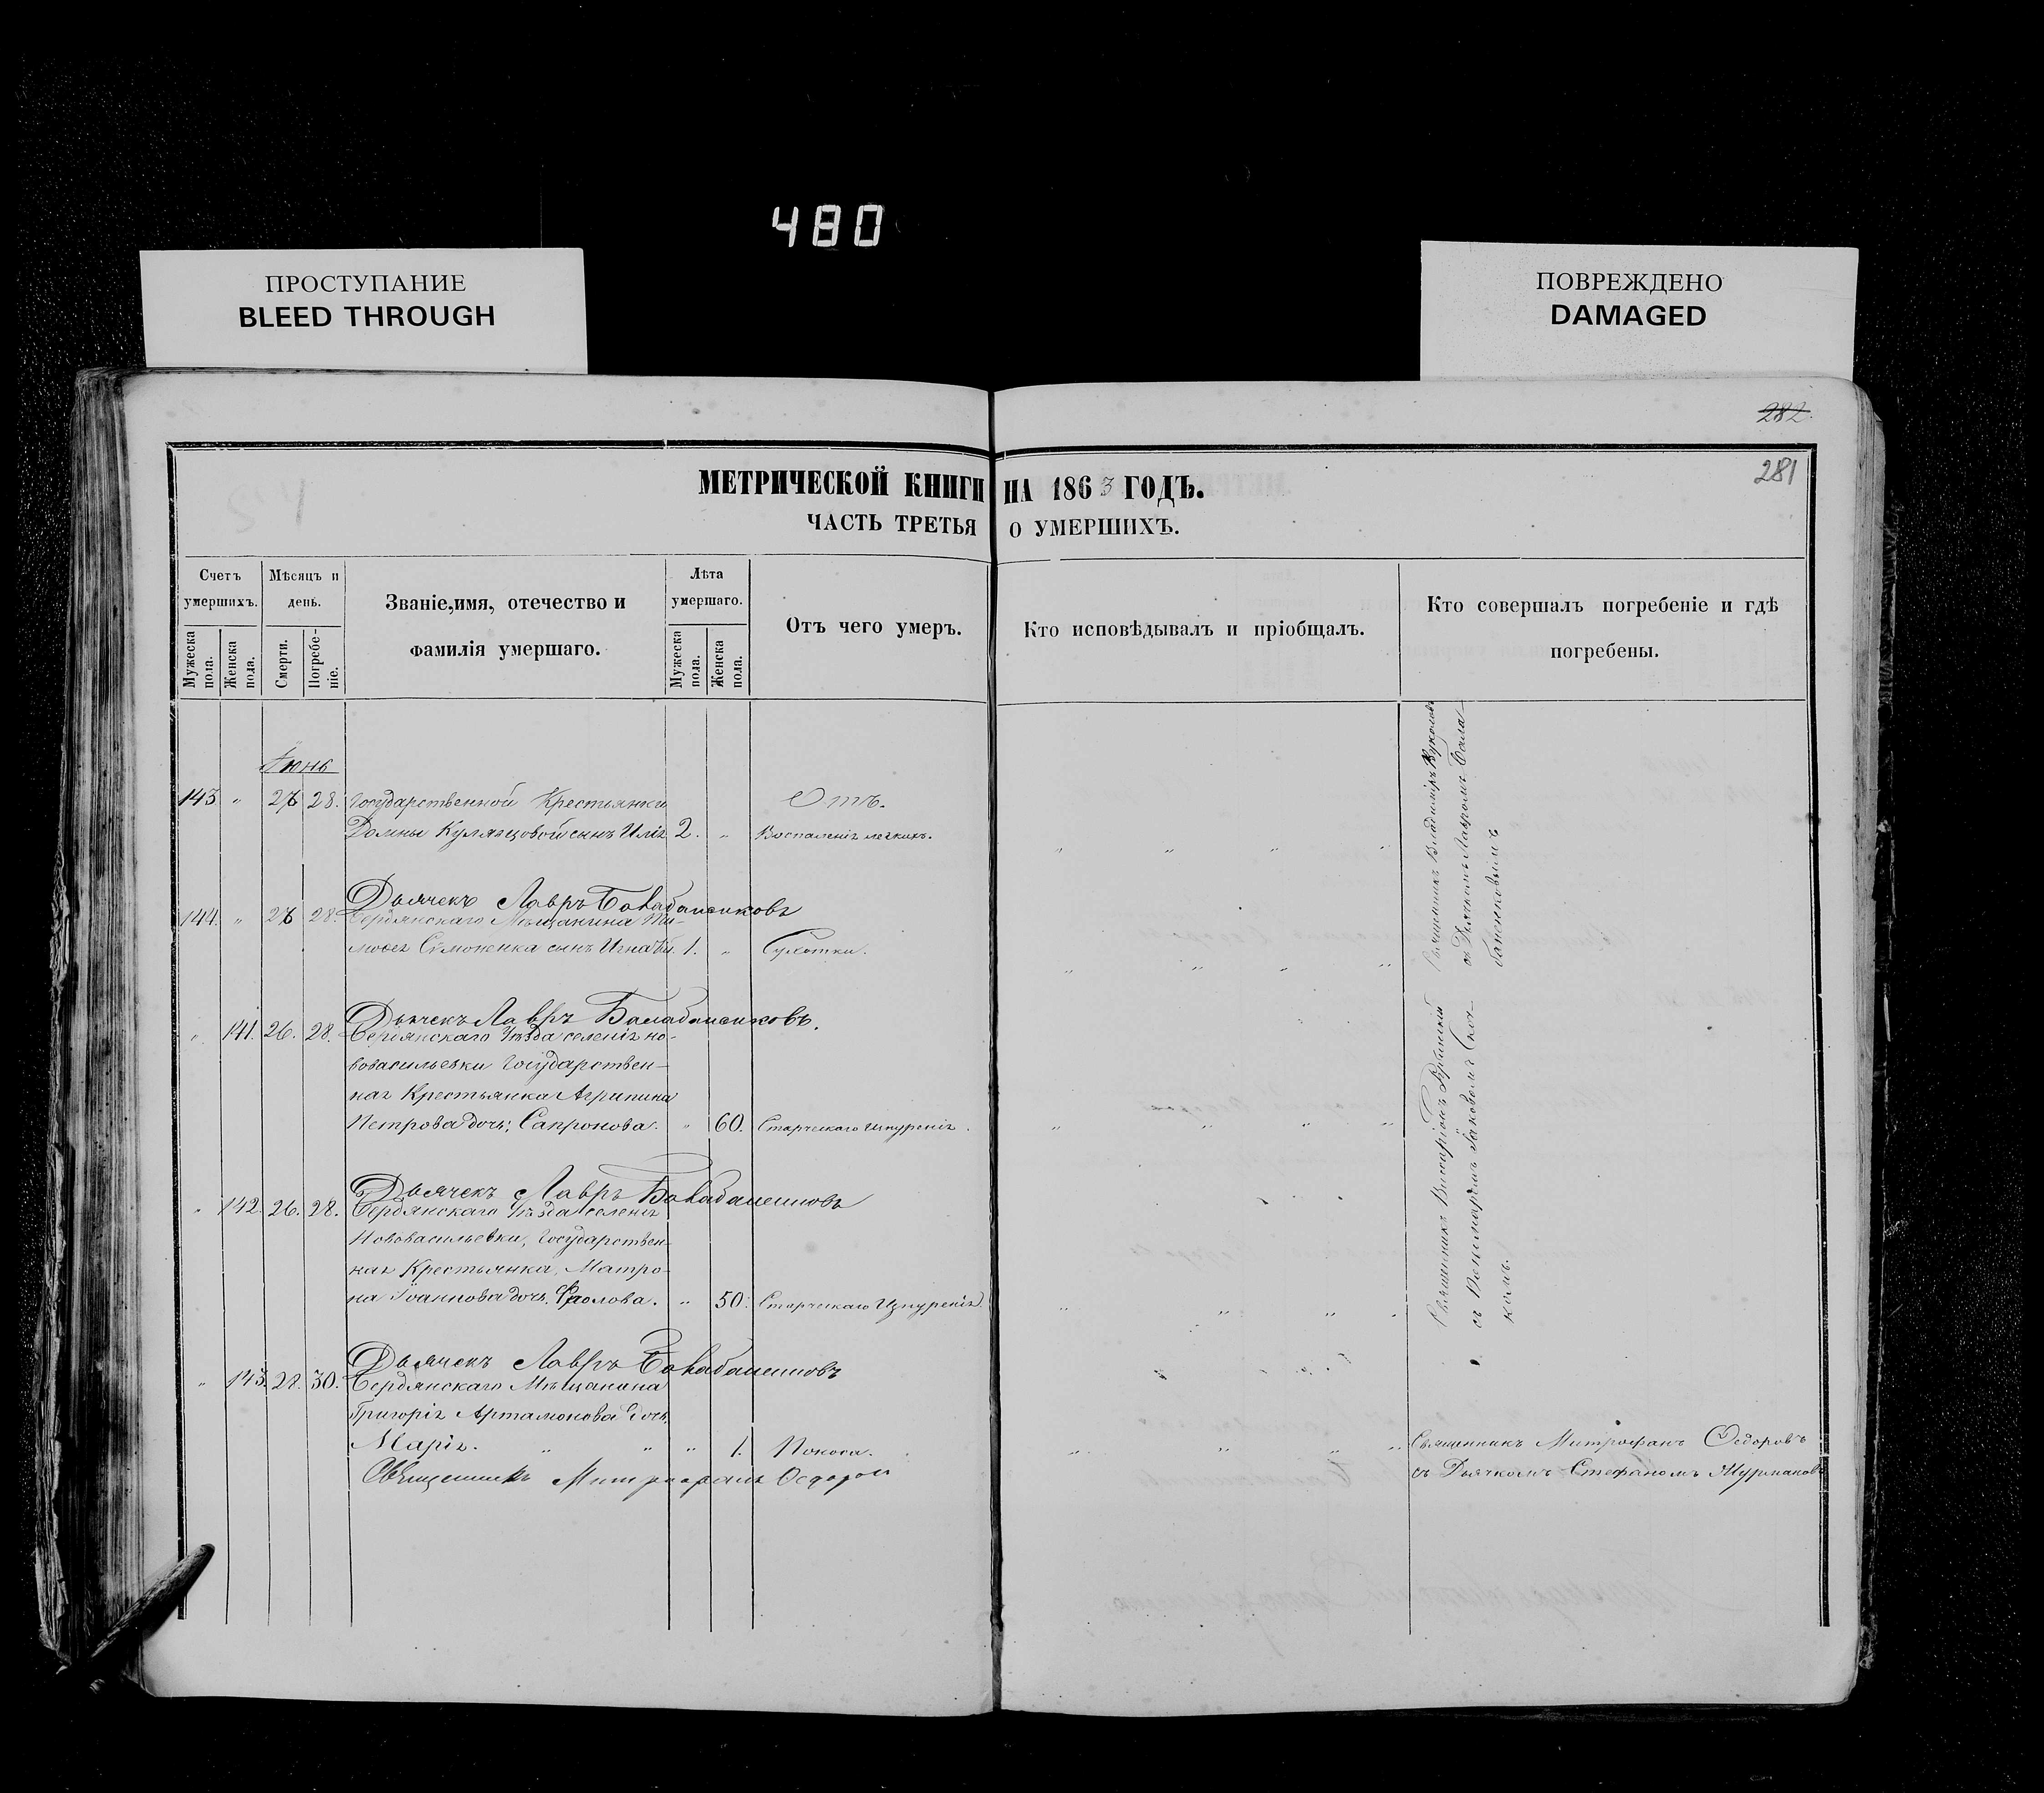 480
ПРОСТУПАНИЕ
BLEED THROUGH
ПОВРЕЖДЕНО
DAMAGED
282.
281
МЕТРИЧЕСКОЙ КНИГИ НА 1863 ГОДЪ.
ЧАСТЬ ТРЕТЬЯ О УМЕРШИХЪ.
Счетъ умершихъ.
Мужеска пола.
Женска пола.
Мѣсяцъ и день.
Смерти.
Погребе-ніе.
Званіе,имя, отечество и
фамилія умершаго.
Лѣта умершаго.
Мужеска пола.
Женска пола.
Отъ чего умеръ.
Кто исповѣдывалъ и пріобщалъ.
Кто совершалъ погребеніе и гдѣ
погребены.
Іюнь
143 " 26 28. Государственной Крестьянки Отъ.
Домны Кулязцовой сынъ Илія 2. " Воспаленія легкихъ.
Дьячекъ Лавръ Балабаненковъ
144. " 26 28. Бердянскаго Мѣщанина Ти-
моѳея Симоненка сынъ Игнатій. 1. " Сухотки.
Дьячекъ Лавръ Балабаненковъ.
" 141. 26. 28. Бердянскаго Уѣзда селенія Но-
вовасильевки Государствен-
ная Крестьянка Агрипина
Петрова дочь, Сапронова. " 60. Старческаго Изнуренія.
Дьячекъ Лавръ Балабаненковъ
" 142. 26. 28. Бердянскаго Уѣзда селенія
Нововасильевки, Государствен-
ная Крестьянка, Матро-
на Іоаннова дочь, Фролова. " 50. Старческаго Изнуренія.
Дьячекъ Лавръ Балабаненковъ
" 143. 28. 30. Бердянскаго Мѣщанина
Григорія Артамонова дочь
Марія. " " " 1. Поноса.
Священникъ Митрофанъ Ѳедоровъ
Священникъ Владиміръ
съ Дьячкомъ Лавромъ Бала-
баненковымъ
Священникъ Виссаріонъ
съ Пономаремъ Іаковомъ
комъ.
Священникъ Митрофанъ Ѳедоровъ
съ Дьячкомъ Стефаномъ